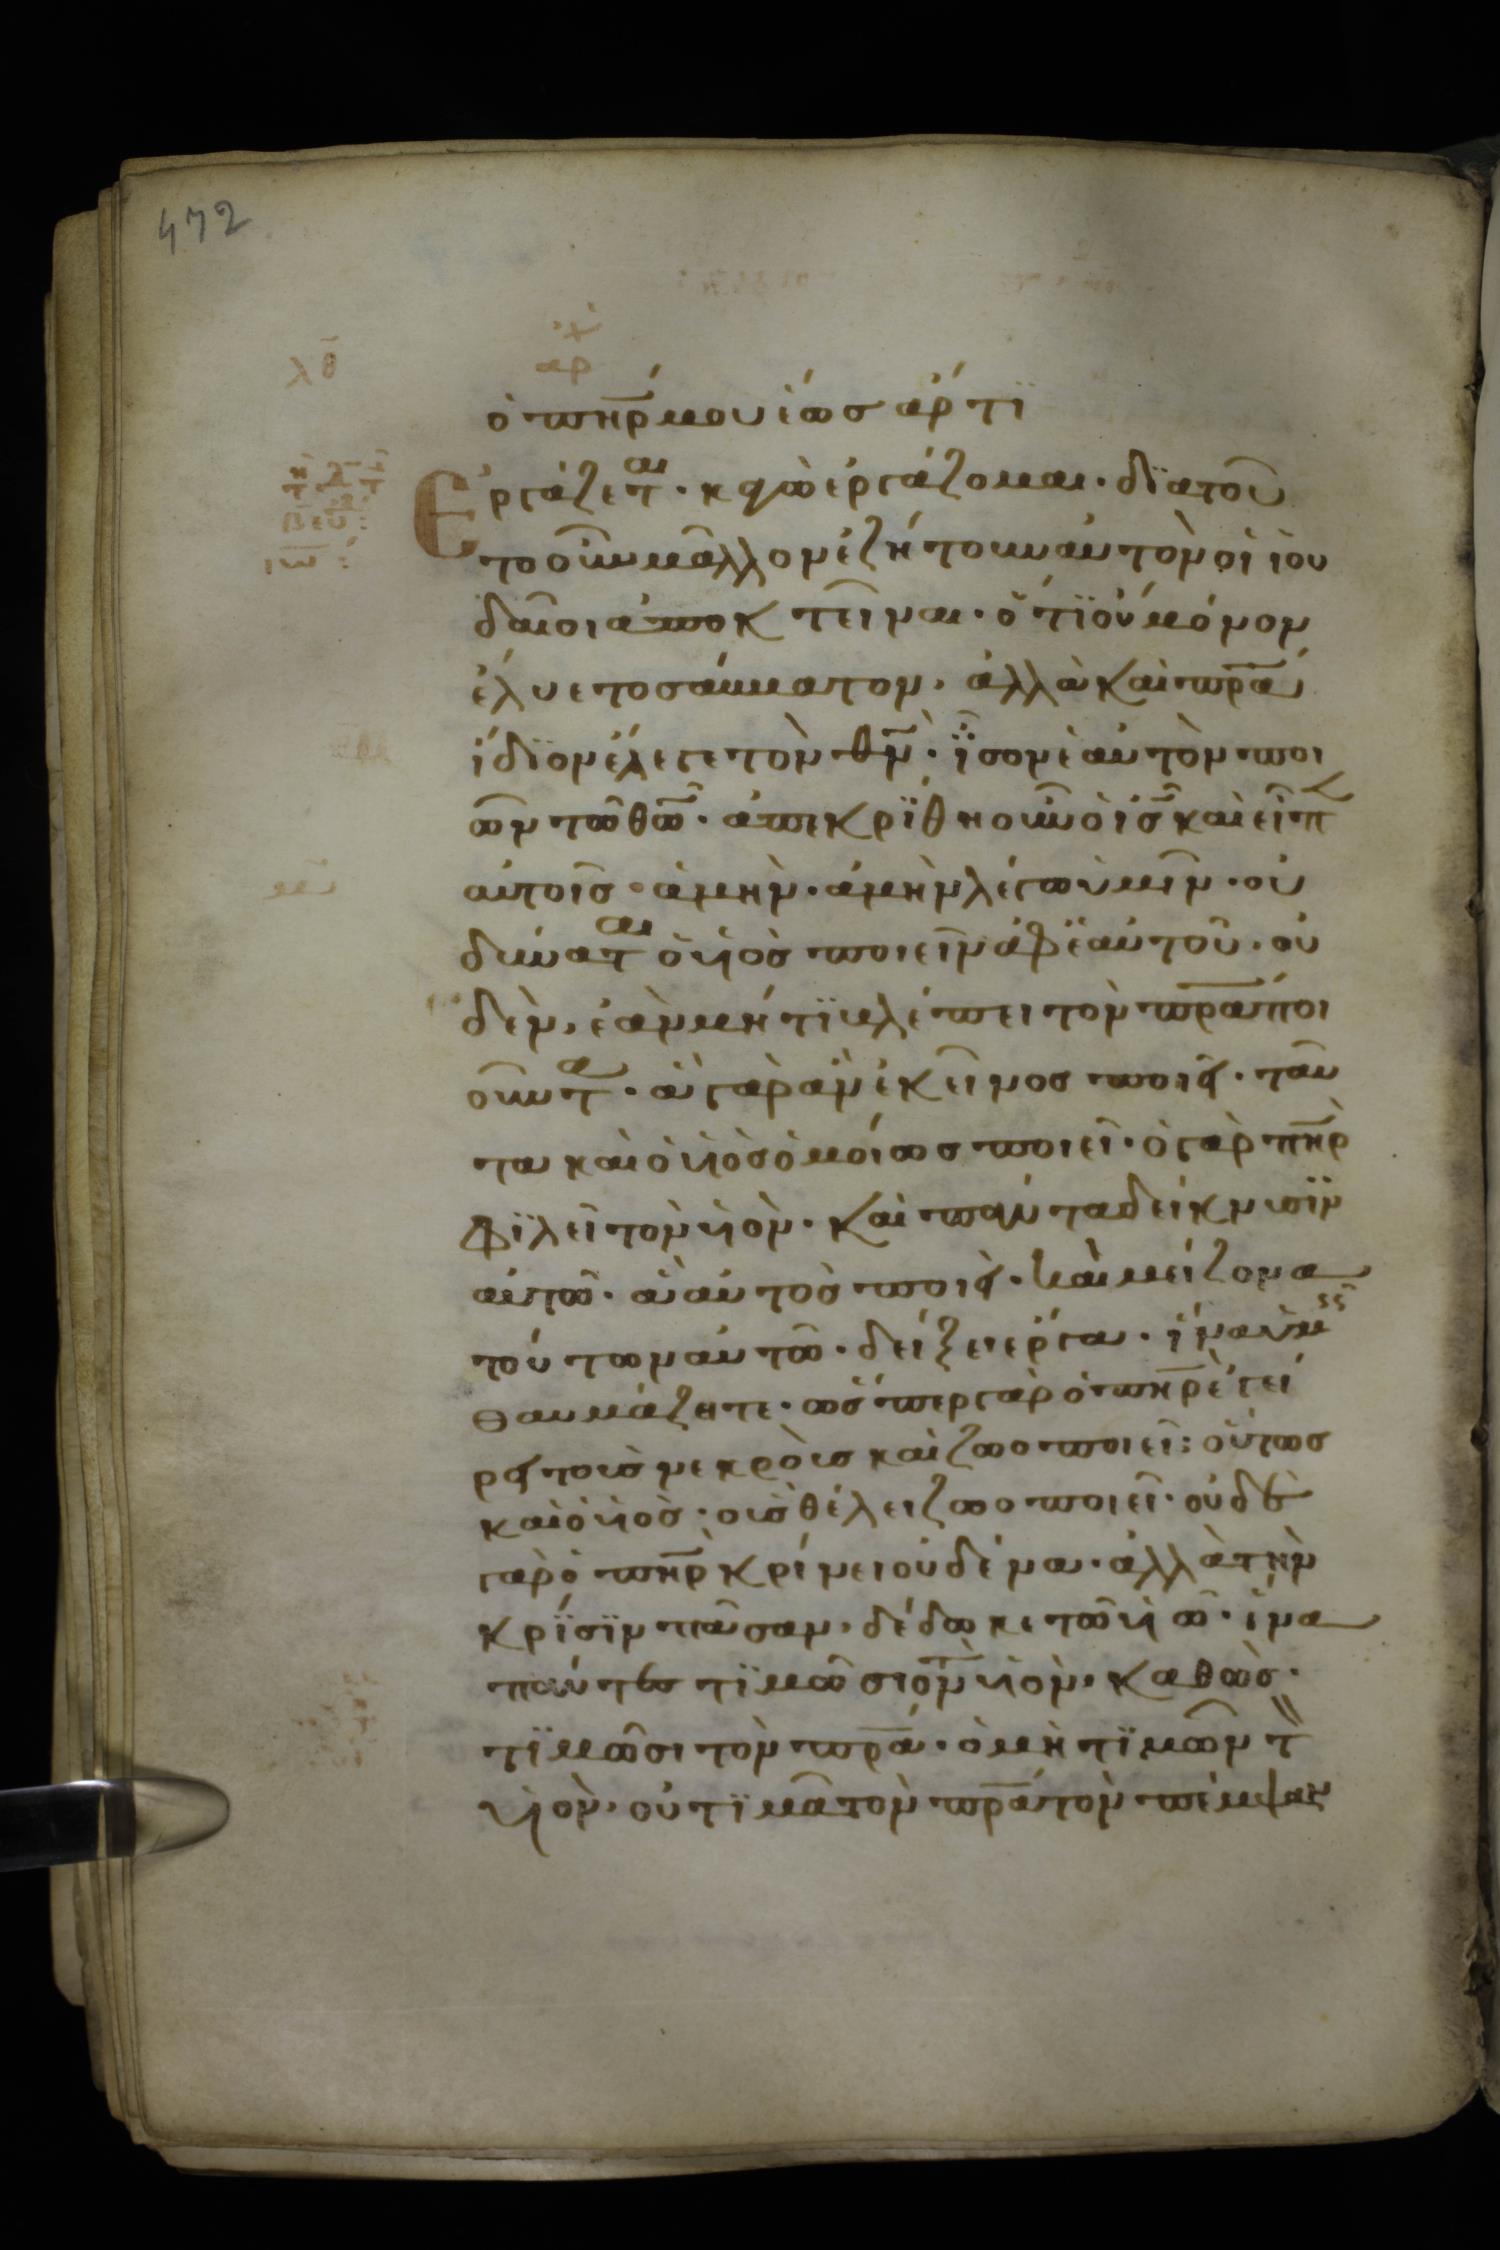 472
λθ̄
ἀρ
ὁ πη̄ρ μου ἕως ἄρτϊ
Ἐργάζεται· κἀγὼ ἐργάζομαι· δϊατοῦ
το οὖν μᾶλλον ἐζήτουν αὐτὸν οἱ ἰου
δαῖοι ἀποκτεῖναι· ὅτϊ οὐ μόνον
ἔλυε το σάββατον, ἀλλὰ καὶ πρ̄α
ἴδϊον ἔλεγε τὸν θν̄· ἴσον ἑαυτὸν ποι
ῶν τῶ θῶ̄· ἀπεκρίθη οὖν ὁ ις̄ καὶ εἶπ
αὐτοῖς· ἀμὴν· ἀμὴν λέγω ὑμῖν· οὐ
δύναται ὁ υἱὸς ποιεῖν ἀφ' ἑαυτοῦ· οὐ
δὲν, ἐὰν μή τϊ βλέπει τὸν πρ̄α ποι
οῦντα· ἃ γὰρ ἂν ἐκεῖνος ποιῆ· ταῦ
τα καὶ ὁ υἱὸς ὁμοίως ποιεῖ· ὁ γὰρ πη̄ρ
φϊλεῖ τὸν υἱὸν· καὶ πάντα δείκνυσϊν
αὐτῶ· ἃ αὐτὸς ποιῆ· καὶ μείζονα
τούτων αὐτῶ· δείξει ἔργα· ἵνα ὑμεῖς
θαυμάζητε· ὥσπερ γὰρ ὁ πη̄ρ ἐγεί
ρη τοὺς νεκροὺς καὶ ζωοποιεῖ: οὕτως
καὶ ὁ υἱὸς· οὓς θέλει ζωοποιεῖ· οὐδὲ
γὰρ ὁ πη̄ρ κρίνει οὐδένα· ἀλλὰ τὴν
κρΐσϊν πᾶσαν, δέδωκε τῶ υἱῶ· ἵνα
πάντες τϊμῶσι τὸν υἱὸν, καθὼς·
τϊμῶσι τὸν πρ̄α· ὁ μὴ τϊμῶν τὸν
υἱὸν, οὐ τϊμᾶ τὸν πρ̄α τὸν πέμψαν